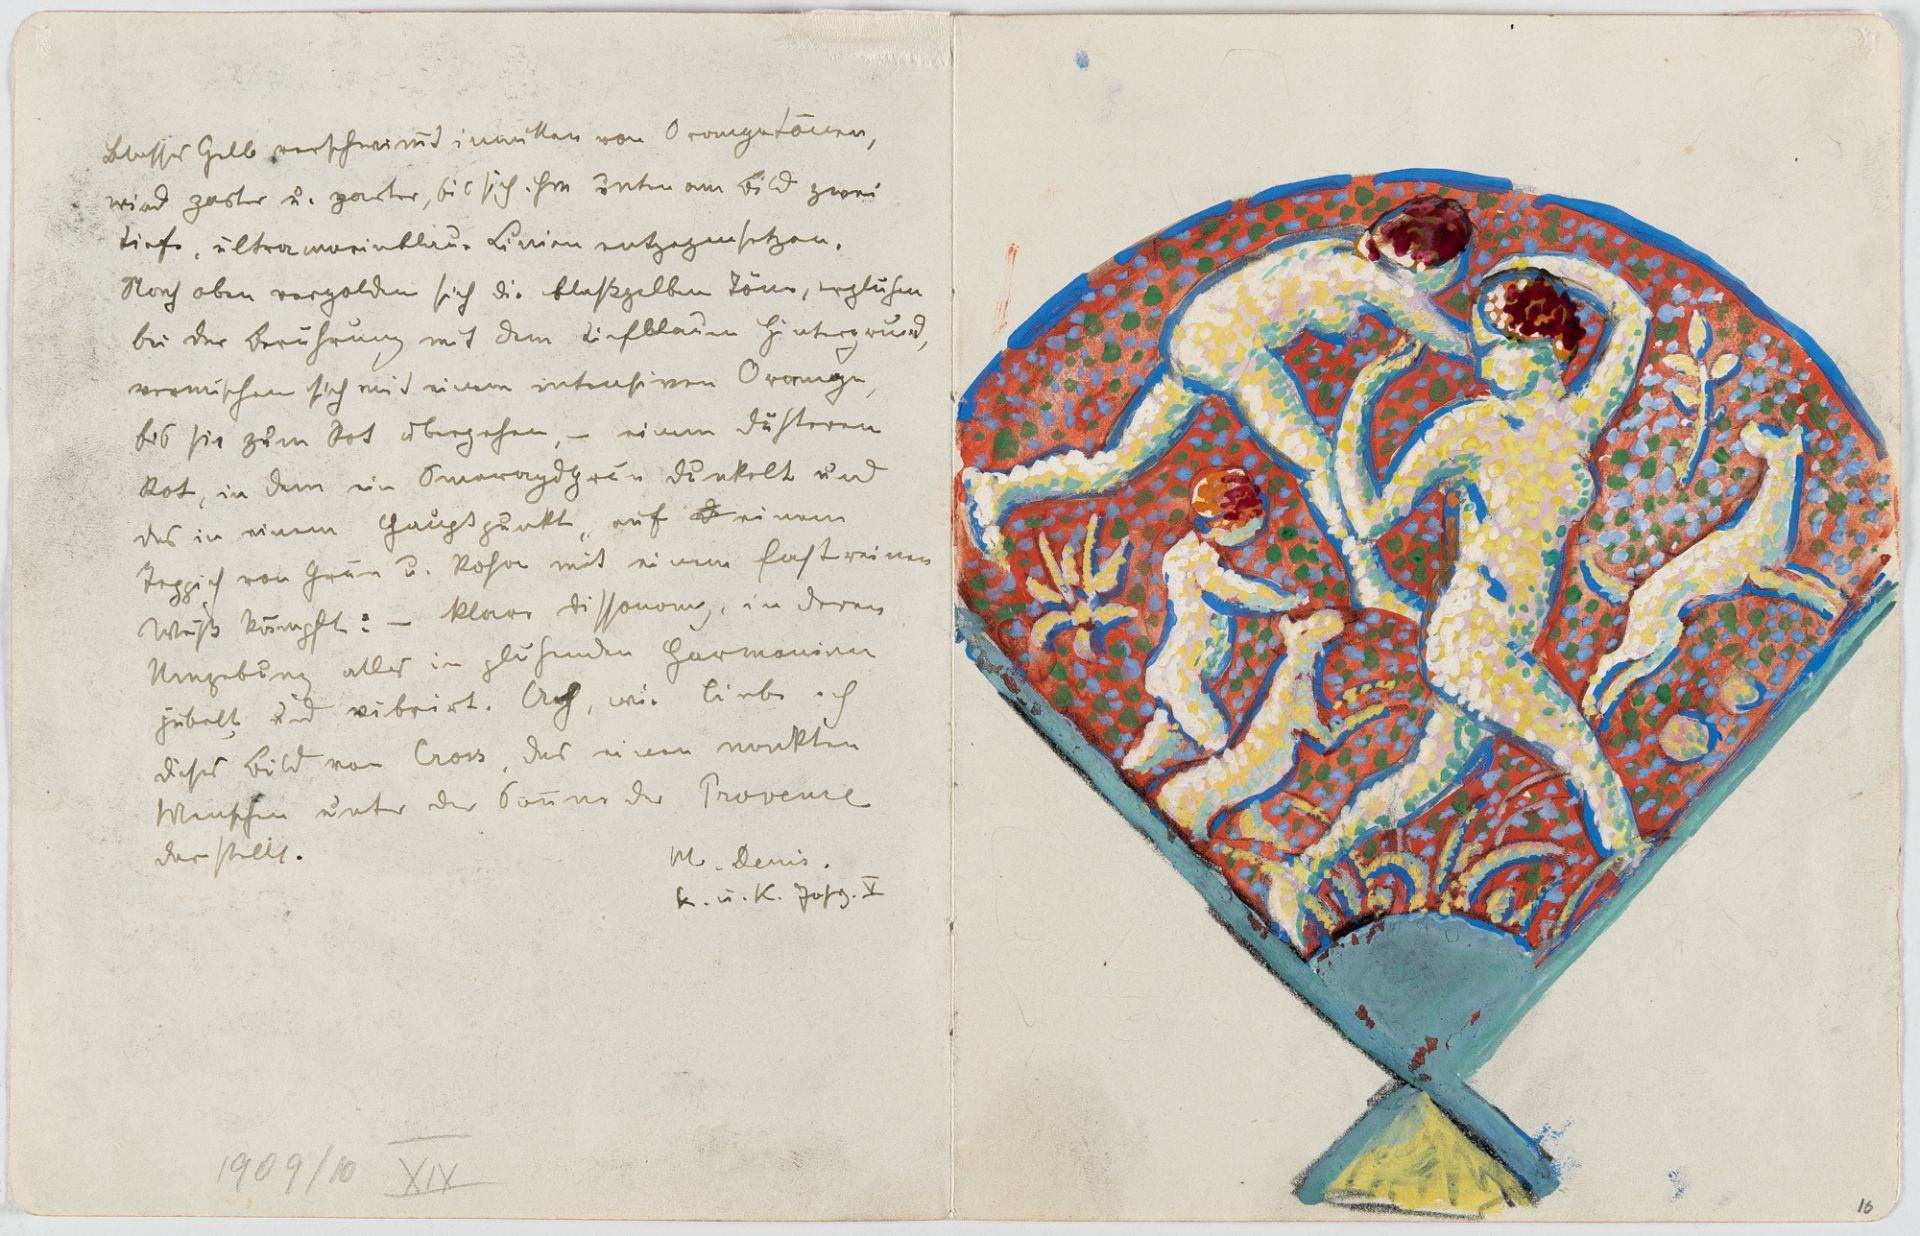 Blasses Gelb verschwimmt inmitten von Orangetönen,
wird zarter u. zarter, bis sich ihm unten am Bild zwei
tiefe, ultramarinblaue Linien entgegensetzen.
Nach oben vergolden sich die blaßgelben Töne, erglühen
bei der Berührung mit dem tiefblauen Hintergrund,
vermischen sich mit einem intensiven Orange,
bis sie zum Rot übergehen, – einem düsteren
Rot, in dem ein Smaragdgrün dunkelt und
das in einem Hauptpunkt, auf einem
Teppich von Grün u. Rosa mit einem fast reinen
Weiß kämpft: – klare Dissonanz, in deren
Umgebung alles in glühenden Harmonien
jubelt und vibriert. Ach, wie liebe ich
dieses Bild von Cross, das einen nackten
Menschen unter der Sonne der Provence
darstellt.
M. Denis.
K. u. K. Jahrg. V
1909/10 XIX
16